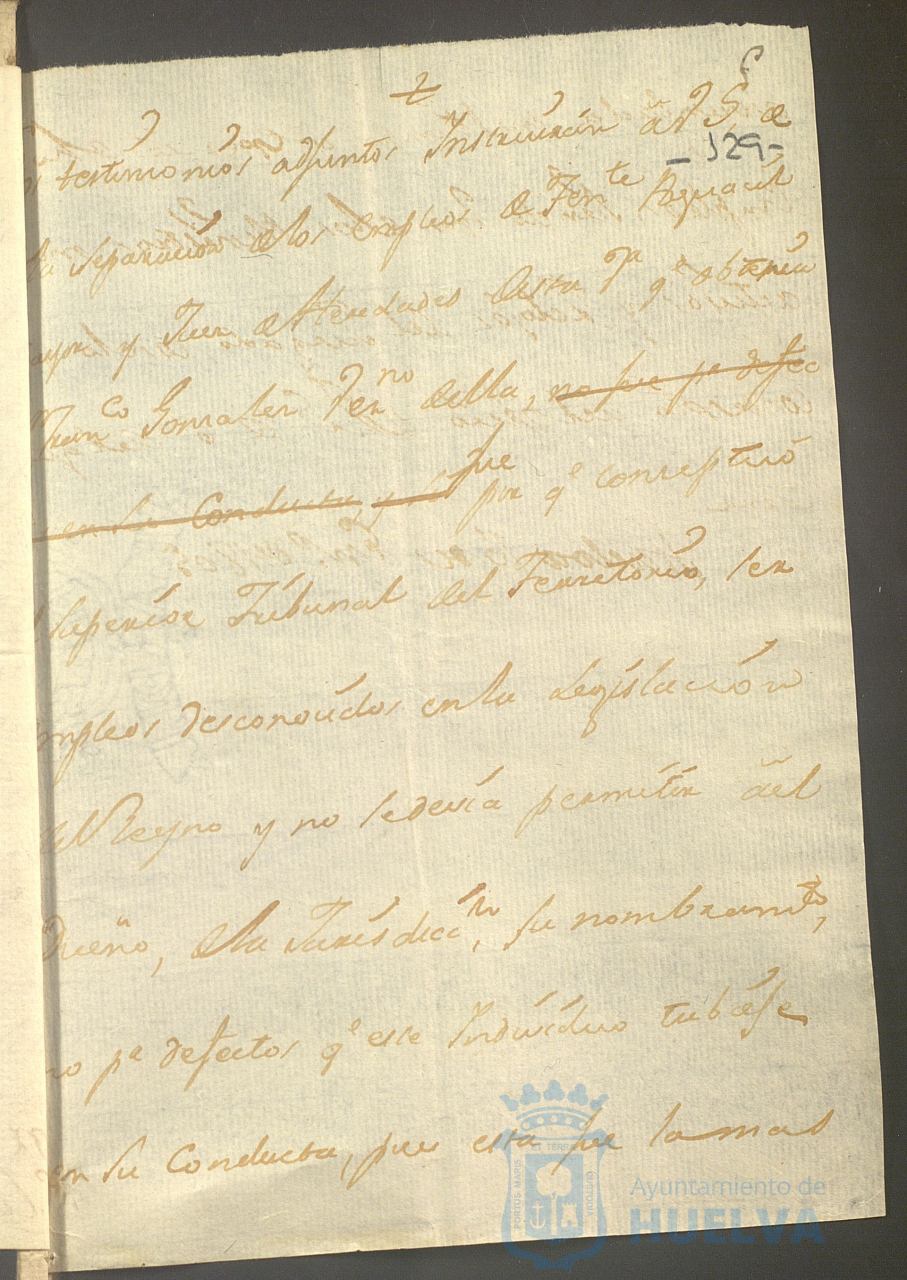 testimonios adjuntos Instruirán â V S, de
- 129 -
la separacion de los empleos de Ten.te Alguacil
mayor y Juez de Heredades desta V.a q.e obtenia
Fran.co Gonzalez Vez.no della, no fue p.r defec
en su Conducta, y si fue por q.e conceptuó
Superior Tribunal del Territorio, ser
empleos desconocidos en la Legislación
del Reyno y no se devia permitir âel
Dueño, de la Jurisdicc.n, su nombram.to,
no p.r defectos q.e este Individuo tubiese
en su Conducta, pues esta fue la mas
PORTUS MARIS ET TERRAE CUSTODIA
Ayuntamiento de
HUELVA